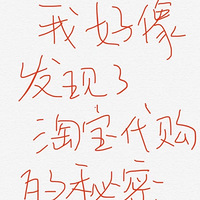 我好像
发现了
淘宝代购
的秘密